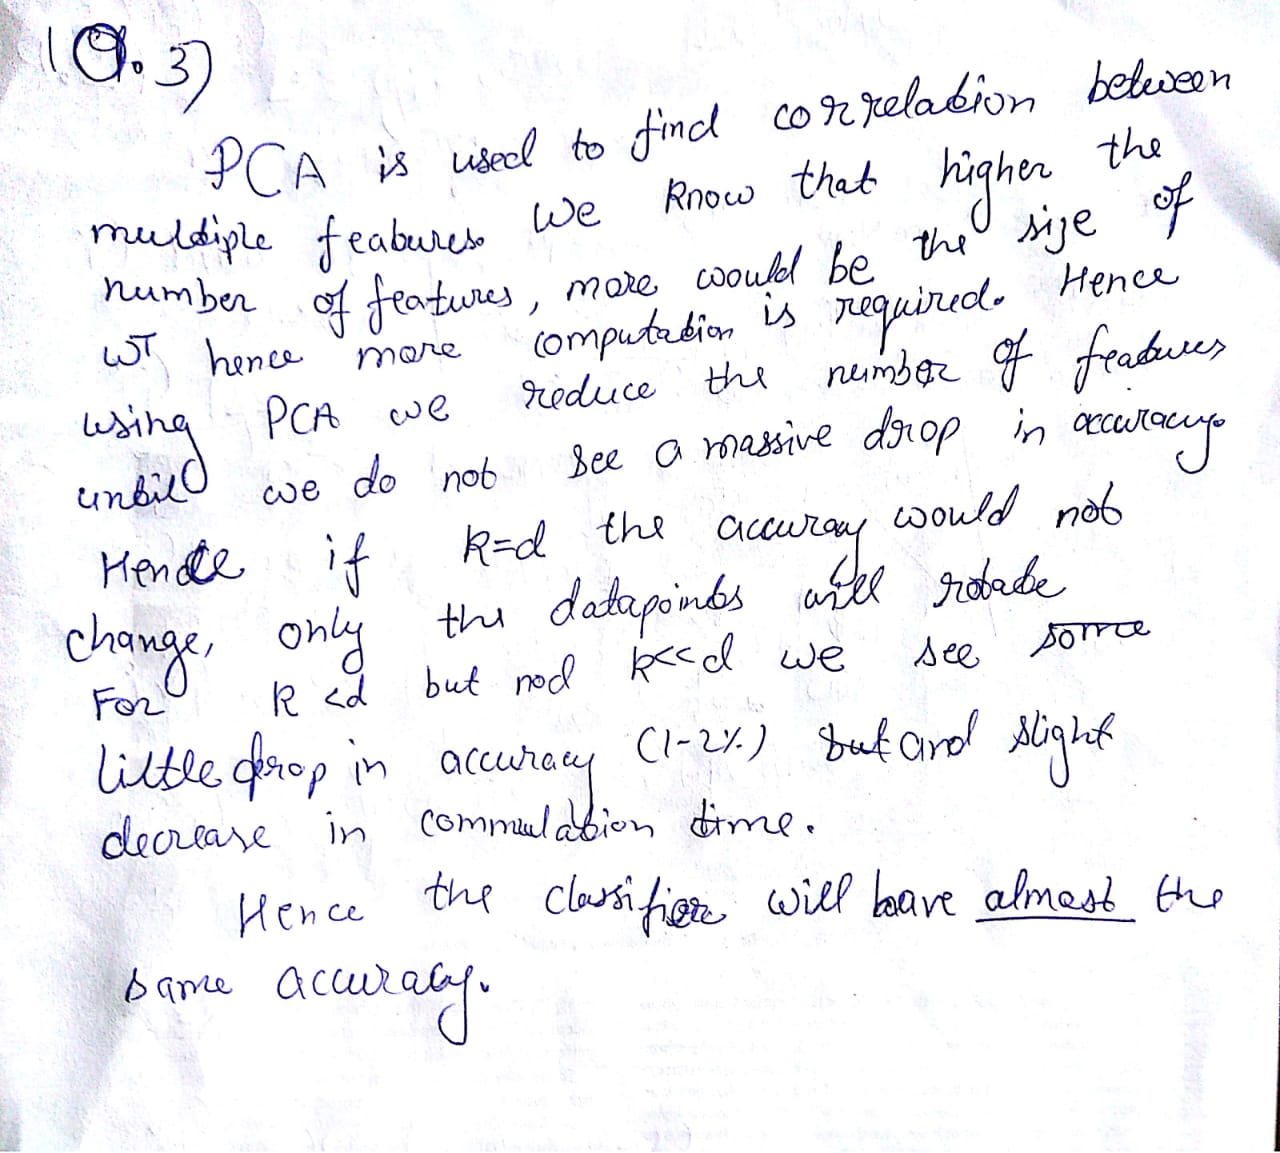 Q. 3)
PCA is used to find correlation between
multiple features. We know that higher the
number of features, more would be the size of
WT hence more computation is required. Hence
using PCA we reduce the number of features
until we do not see a massive drop in accuracy.
Hence if k=d the accuray would not
change, only the datapoints will rotate
For k <d but nod k<<d we see some
little drop in accuracy (1-2%) but and slight
decrease in commulation time.
Hence the classifier will have almost the
same accuracy.